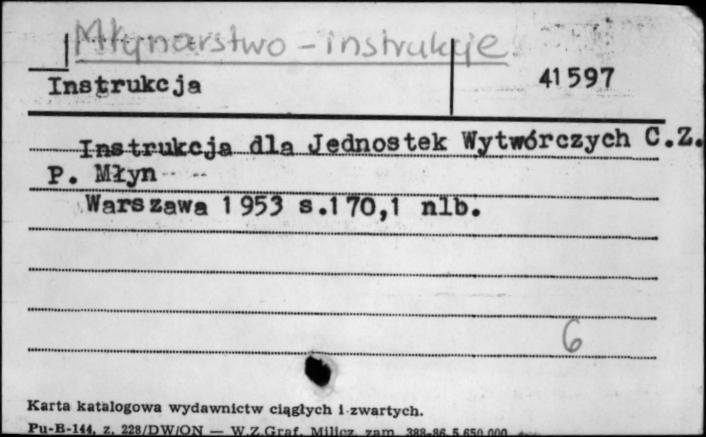 Młynarstwo - instrukcje
Instrukcja 41597
Instrukcja dla Jednostek Wytwórczych C.Z.
P. Młyn
Warszawa 1953 s.170,1 nlb.
6
Karta katalogowa wydawnictw ciągłych i zwartych.
Pu-B-144, z. 228/DW/ON — W.Z.Graf. Milicz zam. 388-86 5.650.000